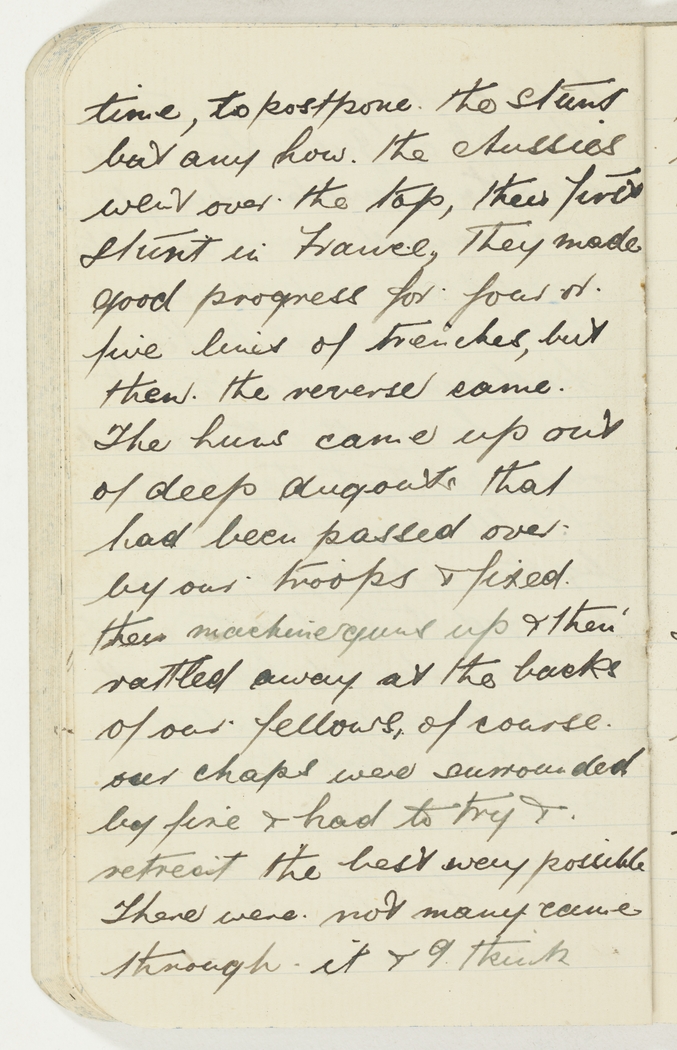 time, to postpone. the stunt
but any how. the Aussies
went over. the top, their first
stunt in France, They made
good progress for. four or.
five lines of trenches, but
then. the reverse came.
The huns came up out
of deep dugouts that
had been passed over.
by our troops & fixed.
their machine guns up & then
rattled away at the backs
of our fellows, of course.
our chaps were surrounded
by fire & had to try &.
retreat the best way possible
There were. not many came
through. it & I think